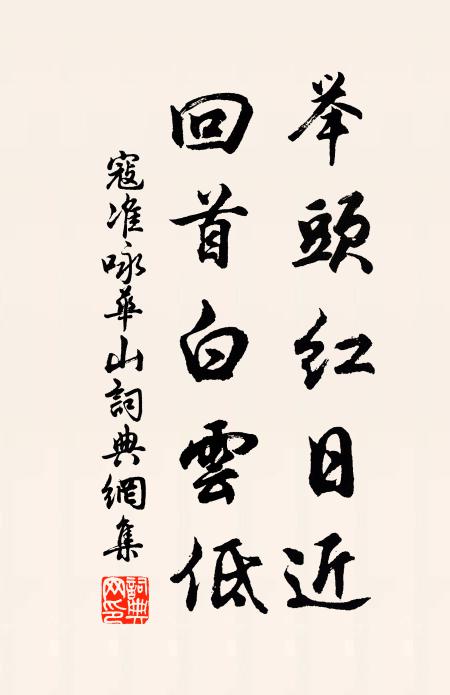 举頭红日近
回首白雲低
寇准咏華山詞典網集
詞典网印